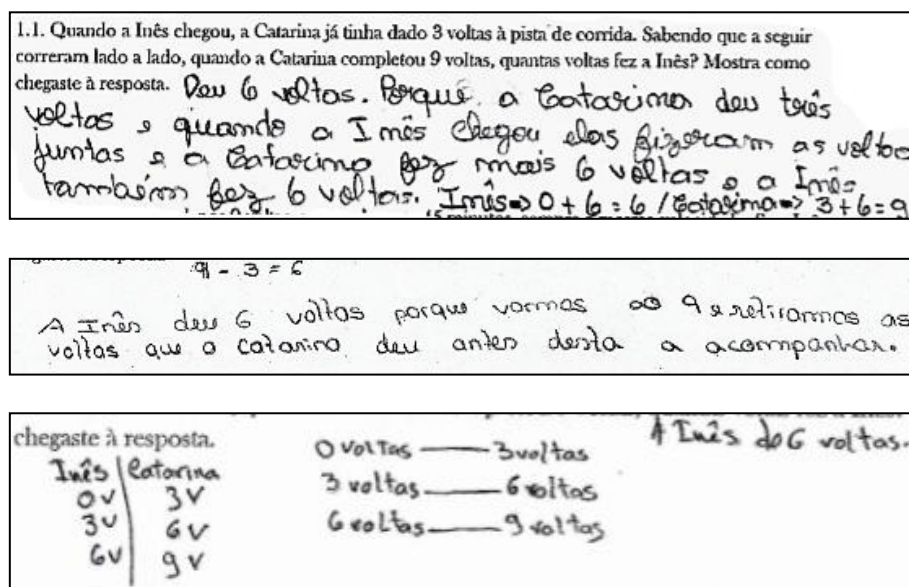 1.1. Quando a Inês chegou, a Catarina já tinha dado 3 voltas à pista de corrida. Sabendo que a seguir
correram lado a lado, quando a Catarina completou 9 voltas, quantas voltas fez a Inês? Mostra como
chegaste à resposta. Deu 6 voltas. Porque a Catarina deu três
voltas e quando a Inês chegou elas fizeram as voltas
juntas e a Catarina fez mais 6 voltas e a Inês
também fez 6 voltas. Inês => 0 + 6 = 6 / Catarina => 3 + 6 = 9
9 - 3 = 6
A Inês deu 6 voltas porque vamos ao 9 e retiramos as
voltas que a Catarina deu antes desta a acompanhar.
chegaste à resposta.
A Inês do 6 voltas.
Inês | Catarina
0V 3V
3V 6V
6V 9V
0 voltas — 3 voltas
3 voltas — 6 voltas
6 voltas — 9 voltas